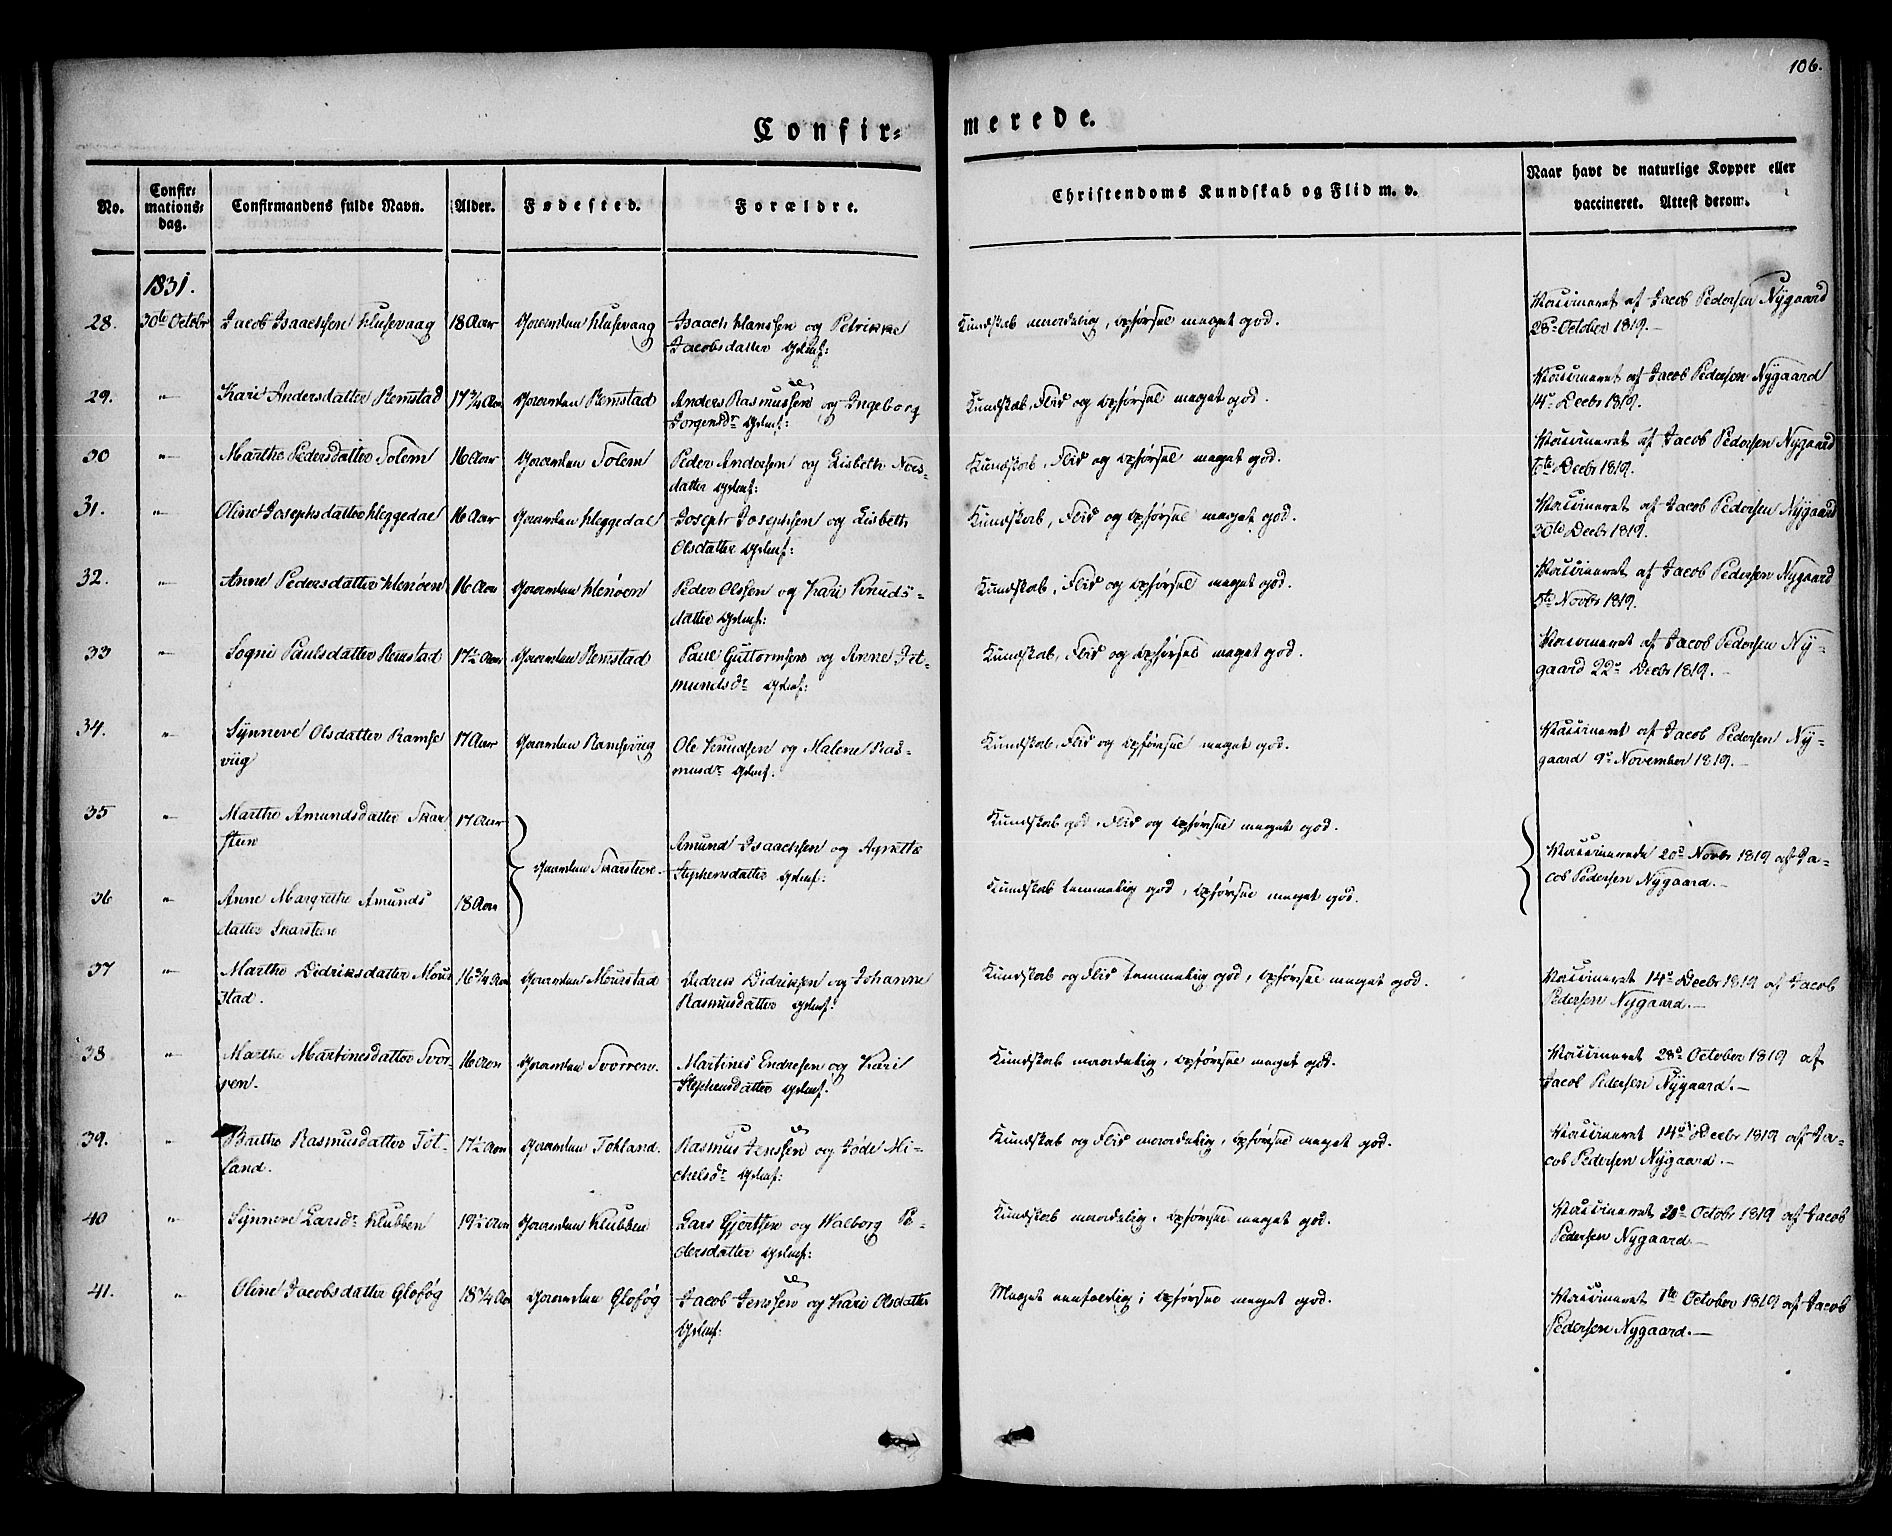 106.
Confir=
merede.
No.
Confir=
mations=
dag.
Confirmandens fulde Navn.
Alder.
Fødested.
Forældre.
Christendoms Kundskab og Flid m. v.
Naar havt de naturlige Kopper eller
vaccineret. Attest derom.
1831.
28. 30te Octobr Jacob Isaachsen Husevaag 18 Aar Gaarden Husevaag Isaach Hanssen og Petrikke
Jacobsdatter Kundskab maadelig, Opførsel meget god.
Vaccineret af Jacob Pedersen Nÿgaard
28de October 1819.—
29. " Kari Andersdatter Remstad 17 3/4 Aar Gaarden Remstad Anders Rasmussen og Ingeborg
Kundskab, Flid og Opførsel meget god.
Vaccineret af Jacob Pedersen Nÿgaard
14de Decbr 1819.
30 " Marthe Pedersdatter Solem 16 Aar Gaarden Solem Peder Anderssen og Lisbeth
datter Kundskab, Flid og Opførsel meget god.
Vaccineret af Jacob Pedersen Nÿgaard
Decbr 1819.
31. " Oline Josephsdatter Heggedal 16 Aar Gaarden Heggedal Joseph Josephsen og Lisbeth
Olsdatter Kundskab, Flid og Opførsel meget god.
Vaccineret af Jacob Pedersen Nÿgaard
30te Decbr 1819.
32. " Anne Pedersdatter Henøen 16 Aar Gaarden Henøen Peder Olssen og Kari Knuds-
datter Kundskab, Flid og Opførsel meget god.
Vaccineret af Jacob Pedersen Nÿgaard
5te Novbr 1819.
33 " Sogni Paulsdatter Remstad 17½ Aar Gaarden Remstad Paul Guttormsen og Anne
mundsdr Kundskab, Flid og Opførsel meget god.
Vaccineret af Jacob Pedersen Nÿ-
gaard 22de Decbr 1819.—
34. " Sÿnneve Olsdatter Ramse
viig 17 Aar Gaarden Ramseviig Ole Knudsen og Malene Ras-
musdr Kundskab, Flid og Opførsel meget god.
Vaccineret af Jacob Pedersen Nÿ-
gaard 9de November 1819.—
35 " Marthe Amundsdatter Skar
steen 17 Aar
Gaarden Skarsteen. Amund Isaachsen og Agnette
Stephensdatter
Kundskab god, Flid og Opførsel meget god.
Vaccinerede 20de Novbr 1819 af Ja-
cob Pedersen Nÿgaard.—
36 " Anne Margrethe Amunds
datter Skarsteen 18 Aar
Kundskab temmelig god, Opførsel meget god.
37 " Marthe Didriksdatter Mours
stad. 16 3/4 Aar Gaarden Mourstad Didrik Didriksen og Johanne
Rasmusdatter Kundskab og Flid temmelig god, Opførsel meget god.
Vaccineret 14de Decbr 1819 af Jacob
Pedersen Nÿgaard.—
38 " Marthe Martinesdatter Svor-
ren. 16 Aar Gaarden Svorren. Martines Endresen og Kari
Stephensdatter Kundskab maadelig, Opførsel meget god.
Vaccineret 28de October 1819 af
Jacob Pedersen Nÿgaard.—
39. " Berthe Rasmusdatter Tot-
land. 17½ Aar Gaarden Totland. Rasmus Jenssen og Jøde Mi-
chelsdr Kundskab og Flid maadelig, Opførsel meget god.
Vaccineret 14de Decbr 1819 af Ja-
cob Pedersen Nÿgaard.—
40 " Sÿnneve Larsdr Klubben 19½ Aar Gaarden Klubben Lars Gjertsen og Walborg Pe-
dersdatter Kundskab maadelig, Opførsel meget god.
Vaccineret 20de Octobr 1819 af Jacob
Pedersen Nÿgaard.—
41. " Oline Jacobsdatter Gloføg 18 3/4 Aar Gaarden Gloføg Jacob Jenssen og Kari Olsdatter
Meget eenfoldig, Opførsel meget god.
Vaccineret 1te October 1819 af Jacob
Pedersen Nÿgaard.—